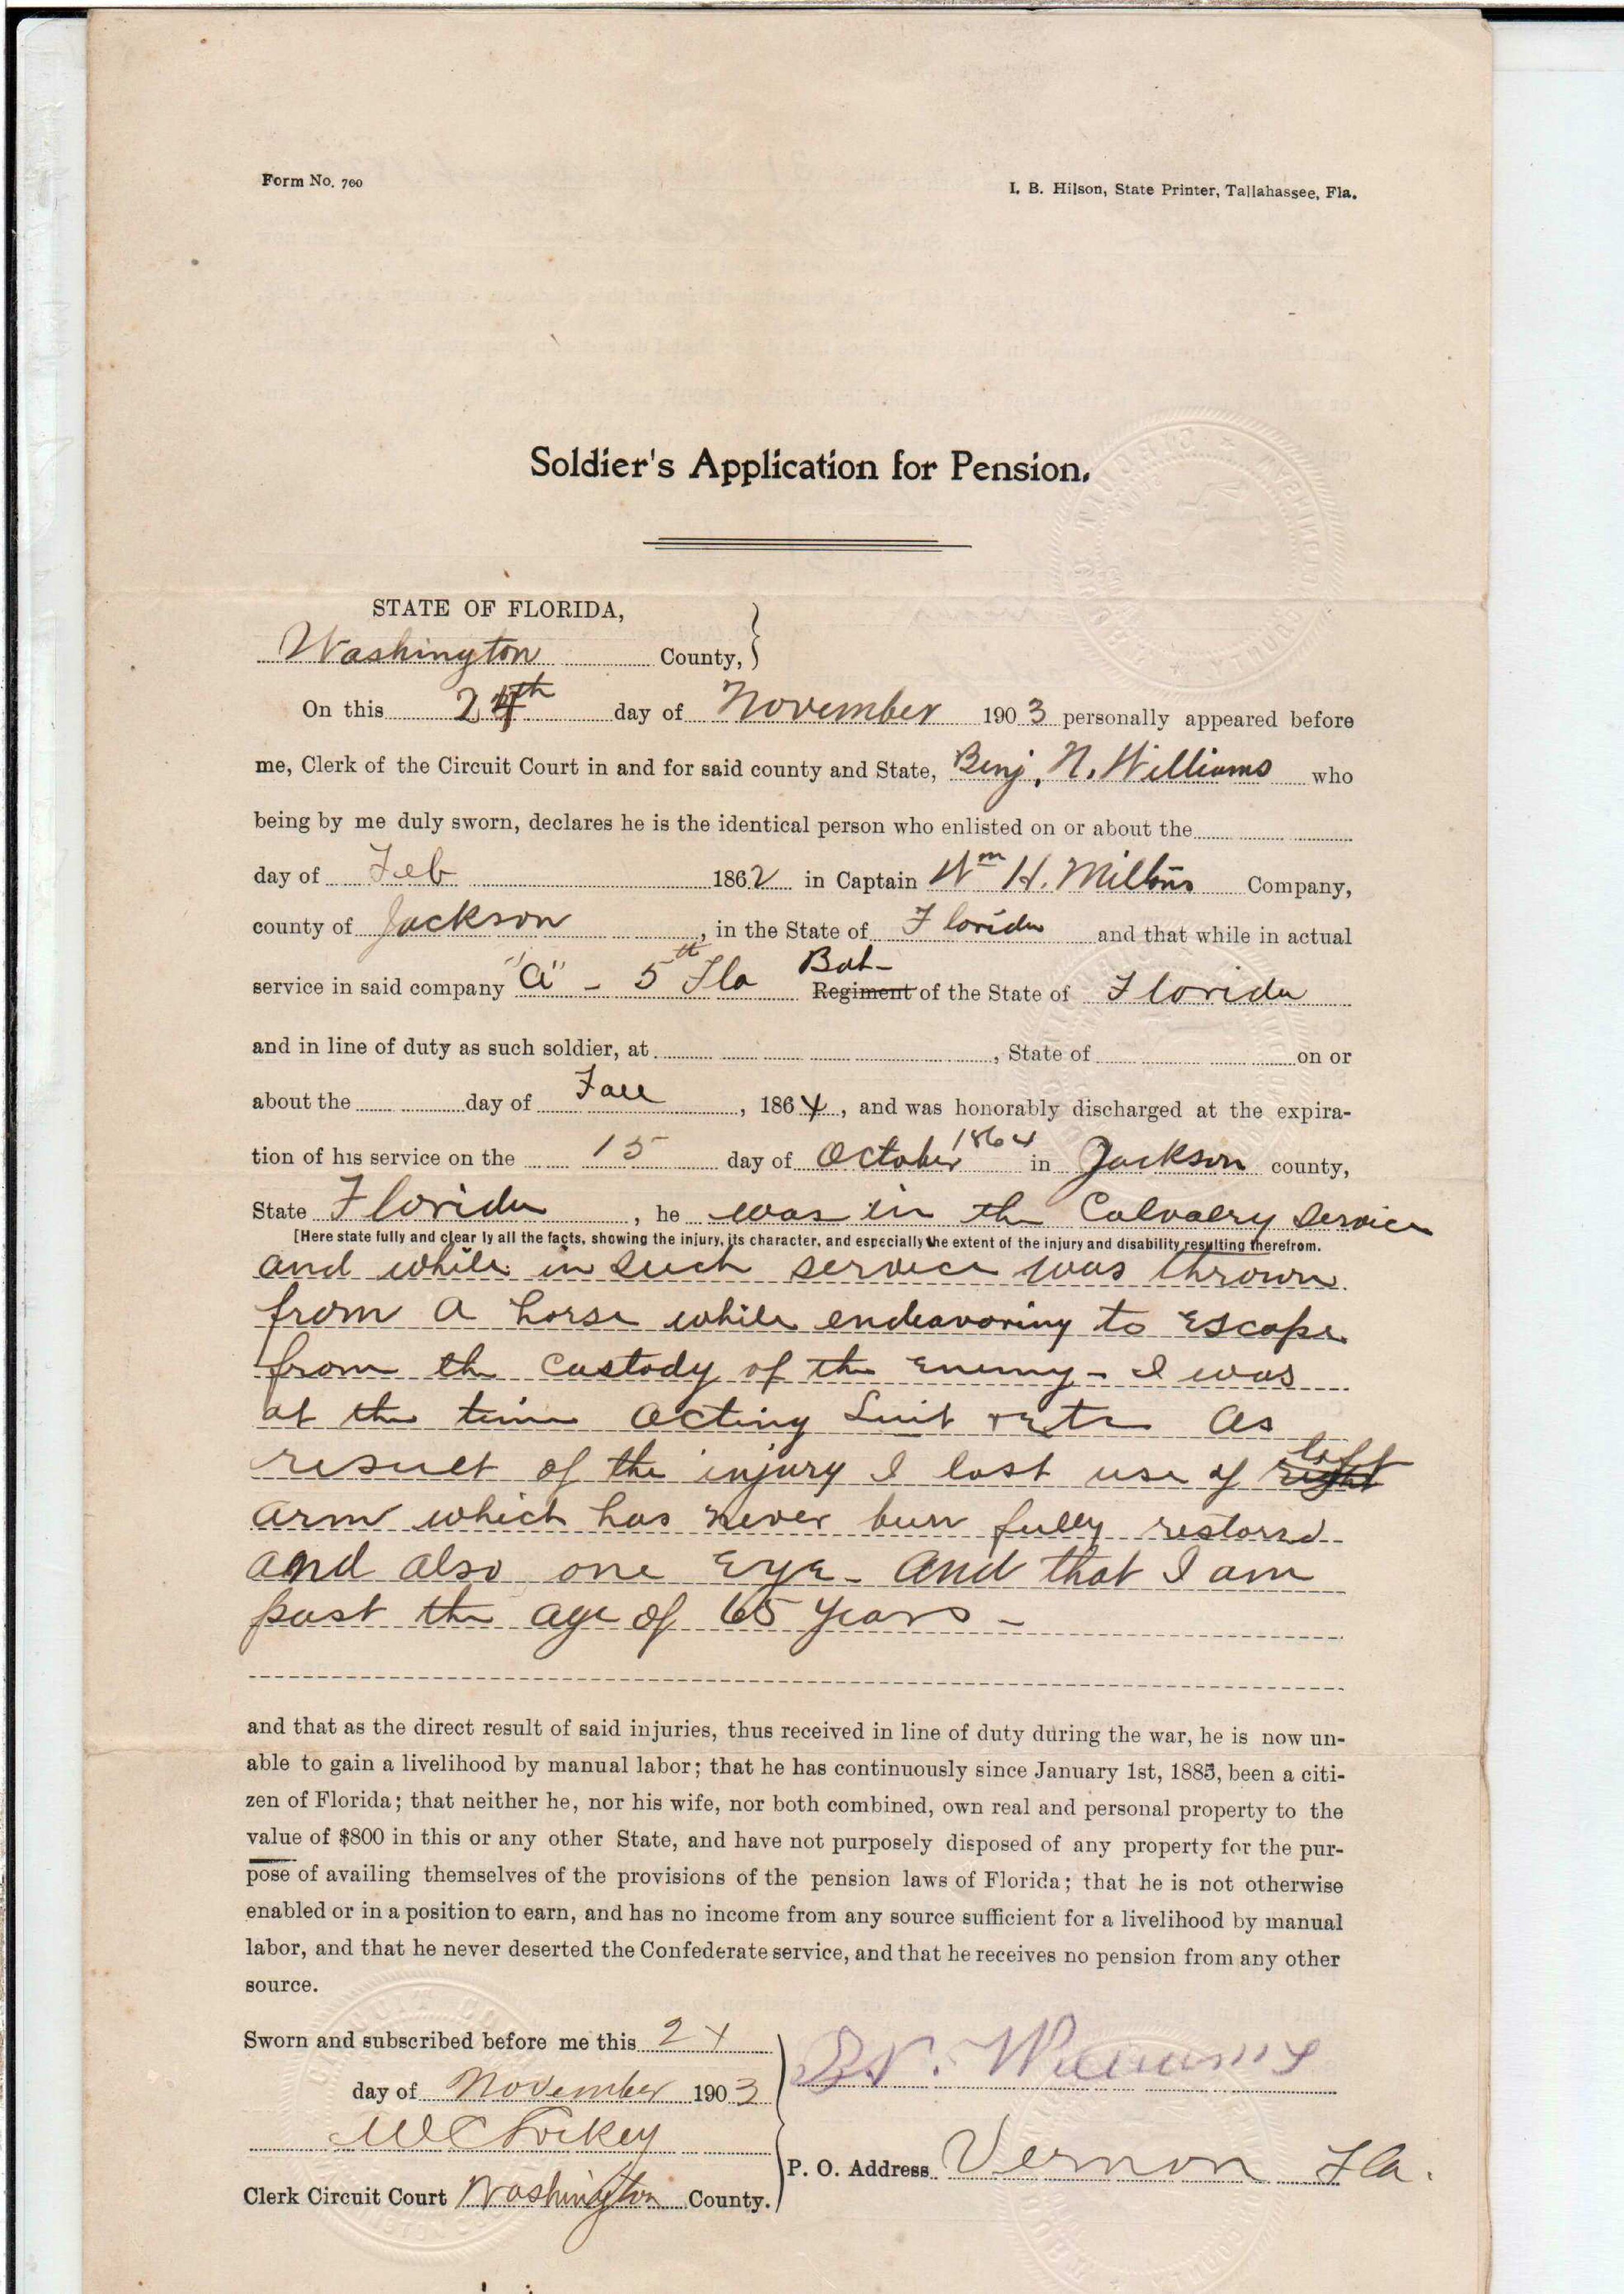 Form No. 700
I. B. Hilson, State Printer, Tallahassee, Fla.
Soldier's Application for Pension.
STATE OF FLORIDA,
Washington County,
On this 24th day of November 1903 personally appeared before
me, Clerk of the Circuit Court in and for said county and State, Benj. N. Williams who
being by me duly sworn, declares he is the identical person who enlisted on or about the
day of Feb 1862 in Captain Wm H. Miltons Company,
county of Jackson, in the State of Florida and that while in actual
service in said company "A" - 5th Fla Bat- Regiment of the State of Florida
and in line of duty as such soldier, at , State of on or
about the day of Fall, 1864, and was honorably discharged at the expira-
tion of his service on the 15 day of October 1864 in Jackson county,
State Florida, he was in the Calvalry service
[Here state fully and clear ly all the facts, showing the injury, its character, and especially the extent of the injury and disability resulting therefrom.
and while in such service was thrown
from a horse while endeavoring to Escape
from the custody of the Enemy - I was
at the time acting as
result of the injury I lost use of right left
arm which has never been fully restored
and also one Eye - and that I am
past the age of 65 years -
and that as the direct result of said injuries, thus received in line of duty during the war, he is now un-
able to gain a livelihood by manual labor; that he has continuously since January 1st, 1885, been a citi-
zen of Florida; that neither he, nor his wife, nor both combined, own real and personal property to the
value of $800 in this or any other State, and have not purposely disposed of any property for the pur-
pose of availing themselves of the provisions of the pension laws of Florida; that he is not otherwise
enabled or in a position to earn, and has no income from any source sufficient for a livelihood by manual
labor, and that he never deserted the Confederate service, and that he receives no pension from any other
source.
Sworn and subscribed before me this 24
day of November 1903
B N. Williams
W C Lockey
P. O. Address Vernon Fla.
Clerk Circuit Court Washington County.